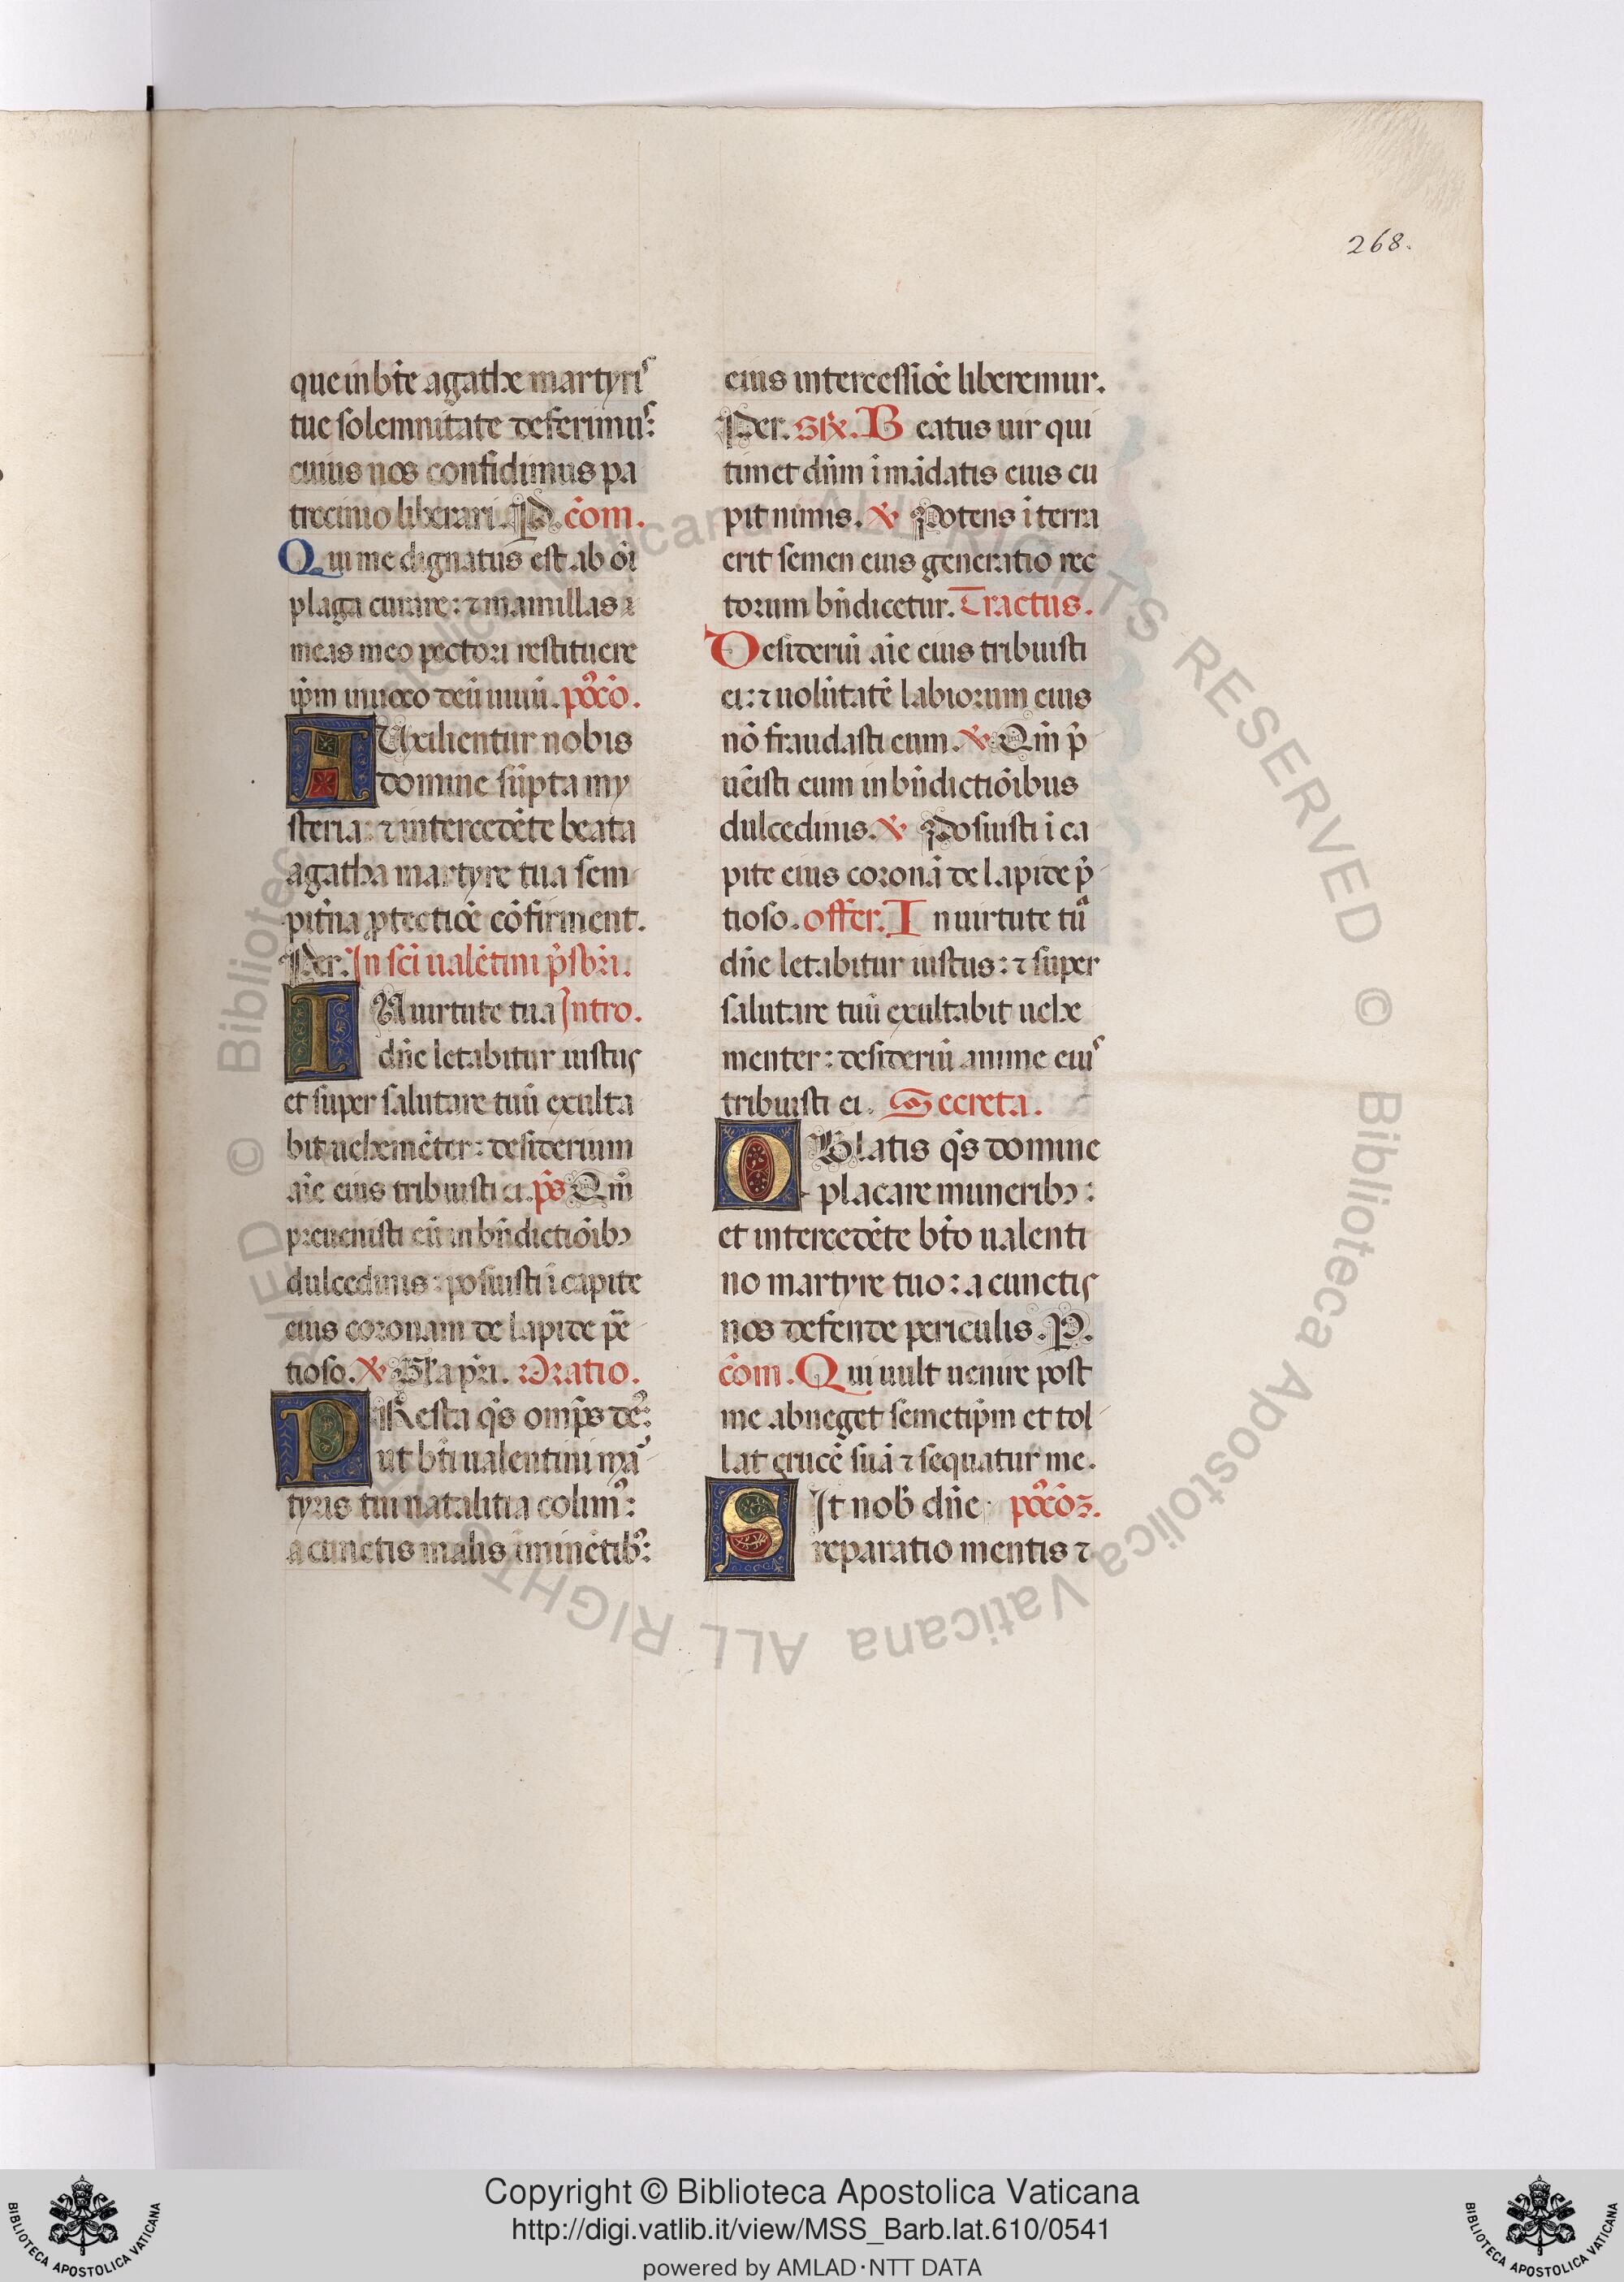 268.
que in bt̄e agathe martyris
tue solemnitate deferimus:
cuius nos confidimus pa
trocinio liberari. P. cōm.
Qui me dignatus est ab ōi
plaga curare: ⁊ mamillas
meas meo pectori restituere
ip̄m inuoco deū uiuū. po᷒cō.
AUxilientur nobis
domine sūpta my
steria: ⁊ intercedēte beata
agatha martyre tua sem
pit̄na ꝓtectiōe cōfirment.
Per. In sc̄i ualētini p̄sb̄ri.
IN uirtute tua Intro.
dn̄e letabitur iustus
et super salutare tuū exulta
bit uehemēter: desiderium
aīe eius tribuisti ei. p̄s Qm̄
preuenisti eū in bn̄dictiōibꝫ
dulcedinis: posuisti ī capite
eius coronam de lapide p̄e
tioso. ℣ Gl̄a pr̄i. Oratio.
PResta q̄s om̄ps deꝰ:
ut bt̄i ualentini mar
tyris tui natalitia colimꝰ:
a cunctis malis īminētibꝰ:
eius intercessiōe liberemur.
Per. GR̄. Beatus uir qui
timet dn̄m ī mādatis eius cu
pit nimis. ℣ Potens ī terra
erit semen eius generatio rec
torum bn̄dicetur. Tractus.
Desideriū aīe eius tribuisti
ei: ⁊ uolūtatē labiorum eius
nō fraudasti eum. ℣ Qm̄ p̄
uēisti eum in bn̄dictiōibus
dulcedinis. ℣ Posuisti ī ca
pite eius coronā de lapide p̄
tioso. offer. In uirtute tua
dn̄e letabitur iustus: ⁊ super
salutare tuū exultabit uehe
menter: desideriū anime eius
tribuisti ei. Secreta.
OBlatis q̄s domine
placare muneribꝫ:
et intercedēte bt̄o ualenti
no martyre tuo: a cunctis
nos defende periculis. P.
cōm. Qui uult uenire post
me abneget semetip̄m et tol
lat crucē suā ⁊ sequatur me.
SIt nob̄ dn̄e po᷒cōꝫ.
reparatio mentis ⁊
© Biblioteca Apostolica Vaticana ALL RIGHTS RESERVED © Biblioteca Apostolica Vaticana ALL RIGHTS RESERVED
Copyright © Biblioteca Apostolica Vaticana
http://digi.vatlib.it/view/MSS_Barb.lat.610/0541
powered by AMLAD·NTT DATA
BIBLIOTECA APOSTOLICA VATICANA
BIBLIOTECA APOSTOLICA VATICANA